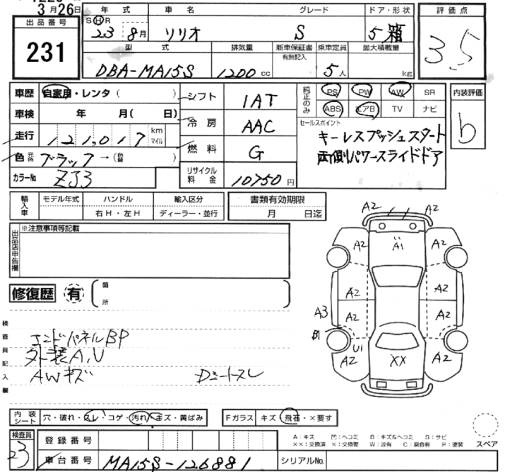 3月26日
出品番号
231
年式 車名 グレード ドア・形状
23 8月 ソリオ S 5 箱
型式 排気量 新車保証書 乗車定員 最大積載量
有無記入
DBA-MA15S 1200 cc 5人 kg
評価点
3.5
車歴 自家用・レンタ( )
車検 年 月( 日)
走行 121,017 km マイル
色 ブラック→(替)
カラーNo ZJ3
シフト 1AT
冷房 AAC
燃料 G
リサイクル料金 10750円
純正のみ
PS PW AW SR
ABS エアB TV ナビ
セールスポイント
キーレスプッシュスタート
両側パワースライドドア
内装評価
b
輸入車
モデル年式 ハンドル 輸入区分
右H・左H ディーラー・並行
書類有効期限
月 日迄
出品店申告欄
※注意事項等記載
修復歴 有 箇所
検査員記入欄
エンドパネルBP
外装A.U
AWキズ
Dシートスレ
A2
A2 A1 A2
A2 A2
A3 A2 A2
A2 U1 XX A2
A2
スペア
内装シート 穴・破れ・スレ・コゲ・汚れ・キズ・黄ばみ
Fガラス キズ・飛石・×要す
検査員
23
登録番号
車台番号 MA15S-126881
シリアルNo.